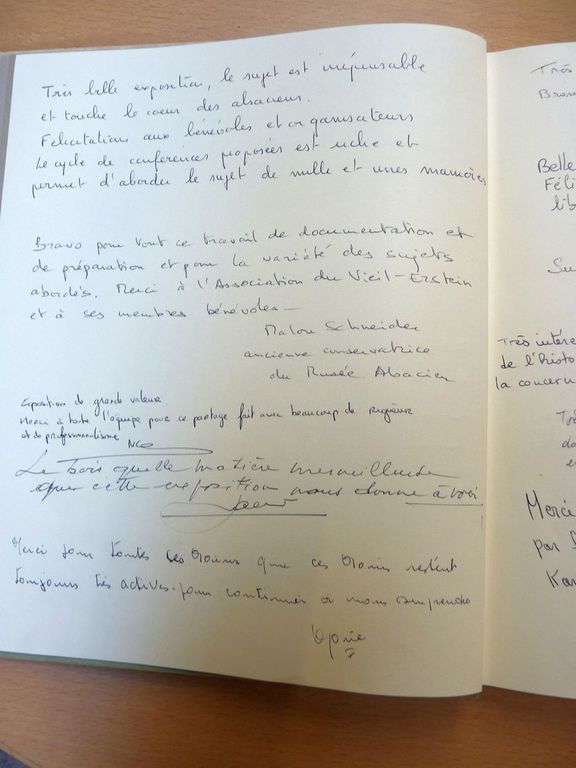 Très belle exposition, le sujet est inépuisable
et touche le coeur des alsaciens.
Félicitations aux bénévoles et organisateurs
Le cycle de conférences proposées est riche et
permet d'aborder le sujet de mille et unes manières
Bravo pour tout ce travail de documentation et
de préparation et pour la variété des sujets
abordés. Merci à l'Association du Vieil-Erstein
et à ses membres bénévoles -
Malou Schneider
ancienne conservatrice
du Musée Alsacien
Exposition de grande valeur
Merci à toute l'équipe pour ce partage fait avec beaucoup de rigueur
et de professionnalisme
Le bois quelle matière merveilleuse
que cette exposition nous donne à voir
Merci pour toutes ces mains que ces mains restent
toujours très actives. pour continuer à nous surprendre
Très
Brav
Belle
Féli
lib
Su
Très intére
de l'histo
la concern
Trè
do
e
Merci
par
Kar